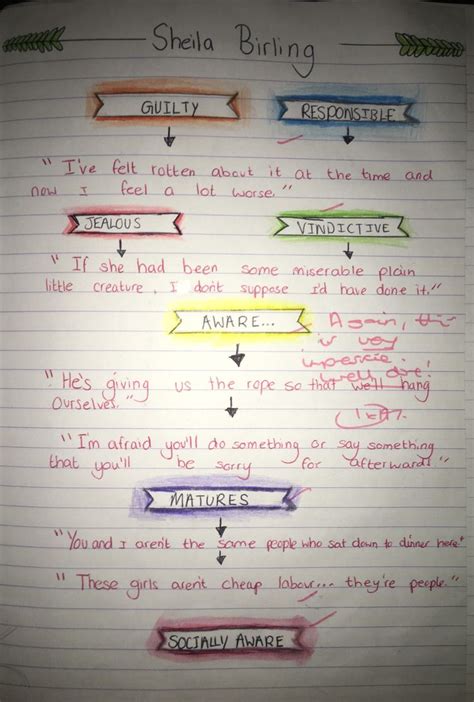 Sheila Birling
GUILTY RESPONSIBLE
"I've felt rotten about it at the time and
now I feel a lot worse."
JEALOUS VINDICTIVE
"If she had been some miserable plain
little creature, I don't suppose I'd have done it."
AWARE...
Again, this
is very
impressive!
well done!
"He's giving us the rope so that we'll hang
Ourselves."
"I'm afraid you'll do something or say something
that you'll be sorry for afterwards"
MATURES
"You and I aren't the same people who sat down to dinner here"
"These girls aren't cheap labour... they're people."
SOCIALLY AWARE